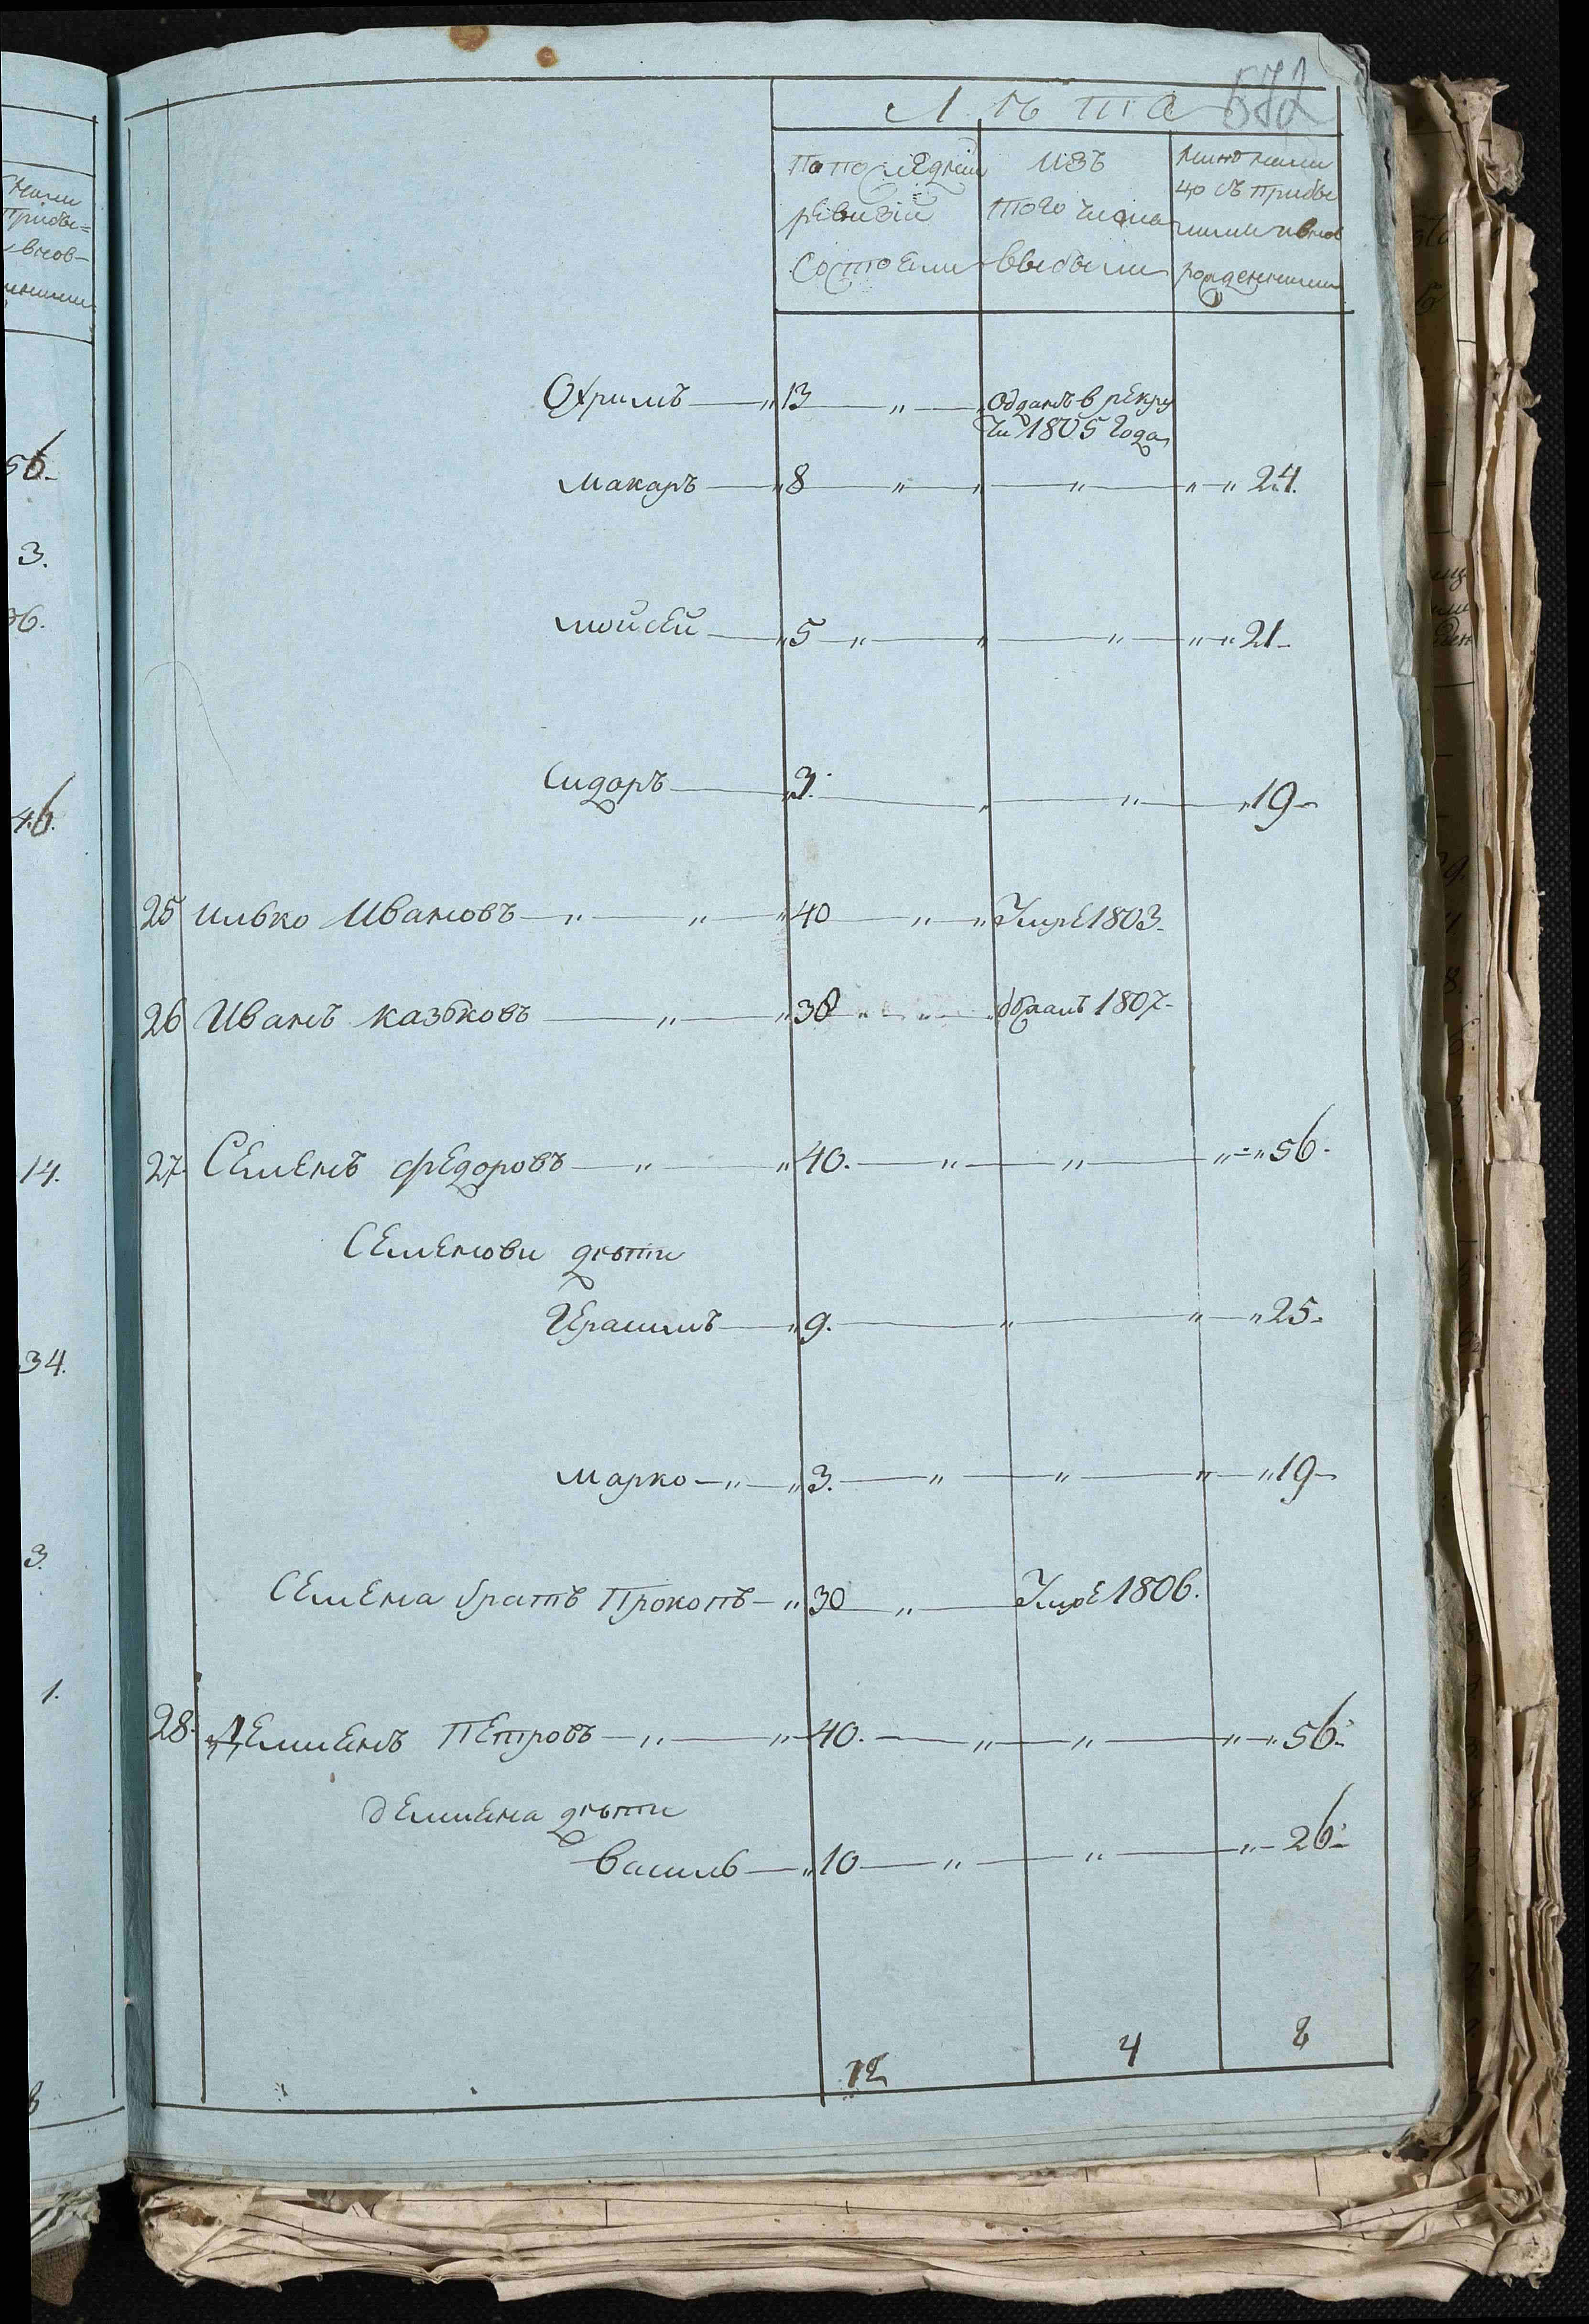 572
Лѣта
По последней
ревизіи
Состояли
изъ
того числа
выбыли
нынѣ нали
цо съ прибы
лыми и внов
рожденными
Охримъ 13 Одданъ в рекру
ти 1805 Года
Макаръ 8 24.
Мойсей 5 21
Сидоръ 3. 19
25 Илько Ивановъ 40 Умре 1803.
26 Иванъ Казьковъ 38 1807
27 Семенъ Федоровъ 40. 56.
Семенови дѣти
Герасимъ 9. 25
Марко 3. 19
Семена братъ Прокопъ 30 Умре 1806.
28 Демиенъ Петровъ 40. 56
демиена дѣти
Василь 10 26
12 4 8
56
3.
36.
46.
14.
34.
3.
1.
8